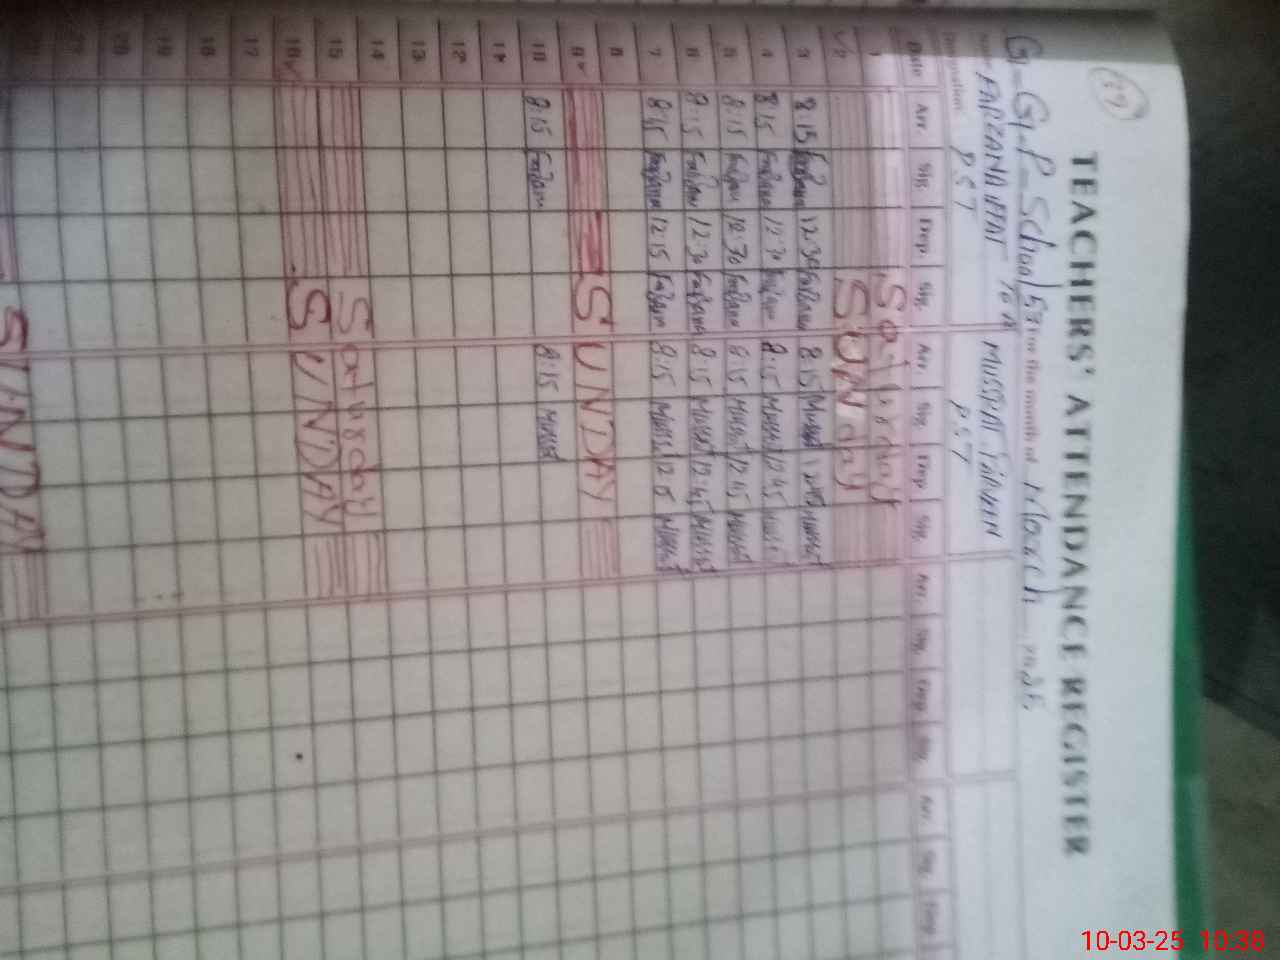 29
TEACHERS' ATTENDANCE REGISTER
School for the month of March 2025
Name FARZANA IFFAT MUSSRAT PARVEEN
Designation PST PST
Date Arr. Sig. Dep. Sig. Arr. Sig. Dep. Sig. Arr. Sig. Dep. Sig. Arr. Sig. Dep.
1 Saturday
2 SUNday
3 8:15 Farzana 12:30 Farzana 8:15 Mussrat 12:45 Mussrat
4 8:15 Farzana 12:30 Farzana 8:15 Mussrat 12:45 Mussrat
5 8:15 Farzana 12:30 Farzana 8:15 Mussrat 12:45 Mussrat
6 8:15 Farzana 12:30 Farzana 8:15 Mussrat 12:45 Mussrat
7 8:15 Farzana 12:15 Farzana 8:15 Mussrat Mussrat
8
9 SUNDAY
10 8:15 Farzana 8:15 Mussrat
11
12
13
14
15 Saturday
16 SUNDAY
17
18
19
20
SUNDAY
10-03-25 10:38